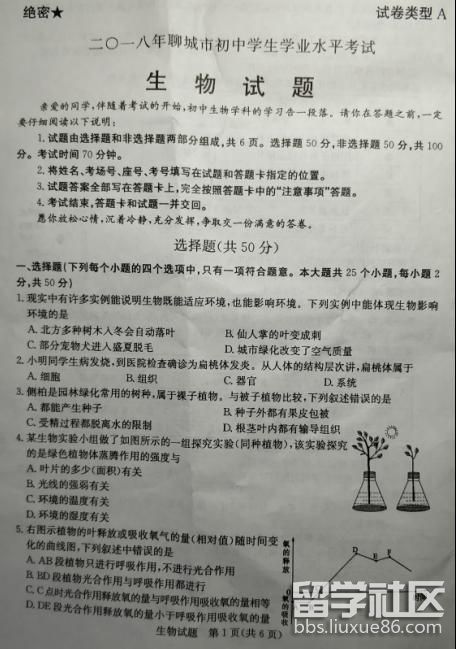 绝密★
试卷类型 A
二〇一八年聊城市初中学生学业水平考试
生物试题
亲爱的同学,伴随着考试的开始,初中生物学科的学习告一段落。请你在答题之前,一定
要仔细阅读以下说明:
1.试题由选择题和非选择题两部分组成,共6页。选择题50分,非选择题50分,共100
分。考试时间70分钟。
2.将姓名、考场号、座号、考号填写在试题和答题卡指定的位置。
3.试题答案全部写在答题卡上,完全按照答题卡中的“注意事项”答题。
4.考试结束,答题卡和试题一并交回。
愿你放松心情,沉着冷静,充分发挥,争取交一份满意的答卷。
选择题(共50分)
一、选择题(下列每个小题的四个选项中,只有一项符合题意。本大题共25个小题,每小题2
分,共50分)
1.现实中有许多实例能说明生物既能适应环境,也能影响环境。下列实例中能体现生物影响
环境的是
A.北方多种树木入冬会自动落叶 B.仙人掌的叶变成刺
C.部分宠物犬进入盛夏脱毛 D.城市绿化改变了空气质量
2.小明同学生病发烧,到医院检查确诊为扁桃体发炎。从人体的结构层次讲,扁桃体属于
A.细胞 B.组织 C.器官 D.系统
3.侧柏是园林绿化常用的树种,属于裸子植物。与被子植物比较,下列叙述错误的是
A.都能产生种子 B.种子外都有果皮包被
C.受精过程都脱离水的限制 D.根茎叶内都有输导组织
4.某生物实验小组做了如图所示的一组探究实验(同种植物),该实验探究
的是绿色植物体蒸腾作用的强度与
A.叶片的多少(面积)有关
B.光线的强弱有关
C.环境的温度有关
D.环境的湿度有关
5.右图示植物的叶释放或吸收氧气的量(相对值)随时间变
化的曲线图,下列叙述中错误的是
A.AB段植物只进行呼吸作用,不进行光合作用
B.BD段植物光合作用与呼吸作用都进行
C.C点时光合作用释放氧的量与呼吸作用吸收氧的量相等
D.DE段光合作用释放氧的量小于呼吸作用吸收氧的量
氧的释放
0
氧的吸收
D
E
F
生物试题 第1页(共6页)
留学社区
bbs.liuxue86.com